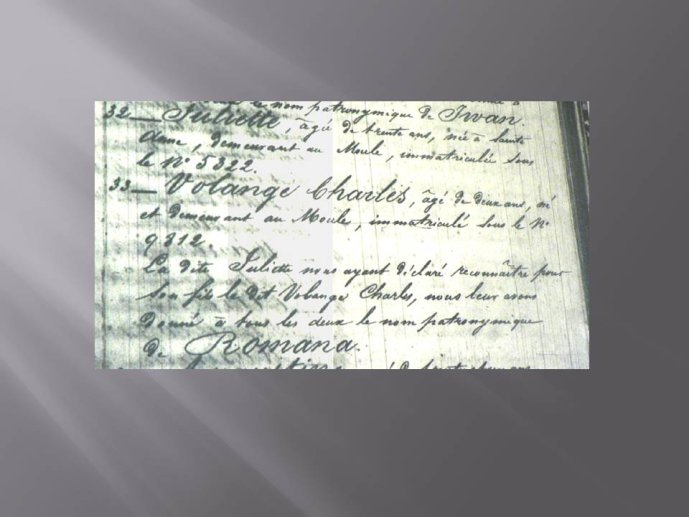 le nom patronymique de Iwan.
32 — Juliette, âgée de trente ans, née à Sainte
Anne, demeurant au Moule, immatriculée sous
le N° 5322.
33 — Volange Charles, âgé de deux ans, né
et demeurant au Moule, immatriculé sous le N°
9312.
La dite Juliette nous ayant déclaré reconnaître pour
son fils le dit Volange Charles, nous leur avons
donné à tous les deux le nom patronymique
de Romana.